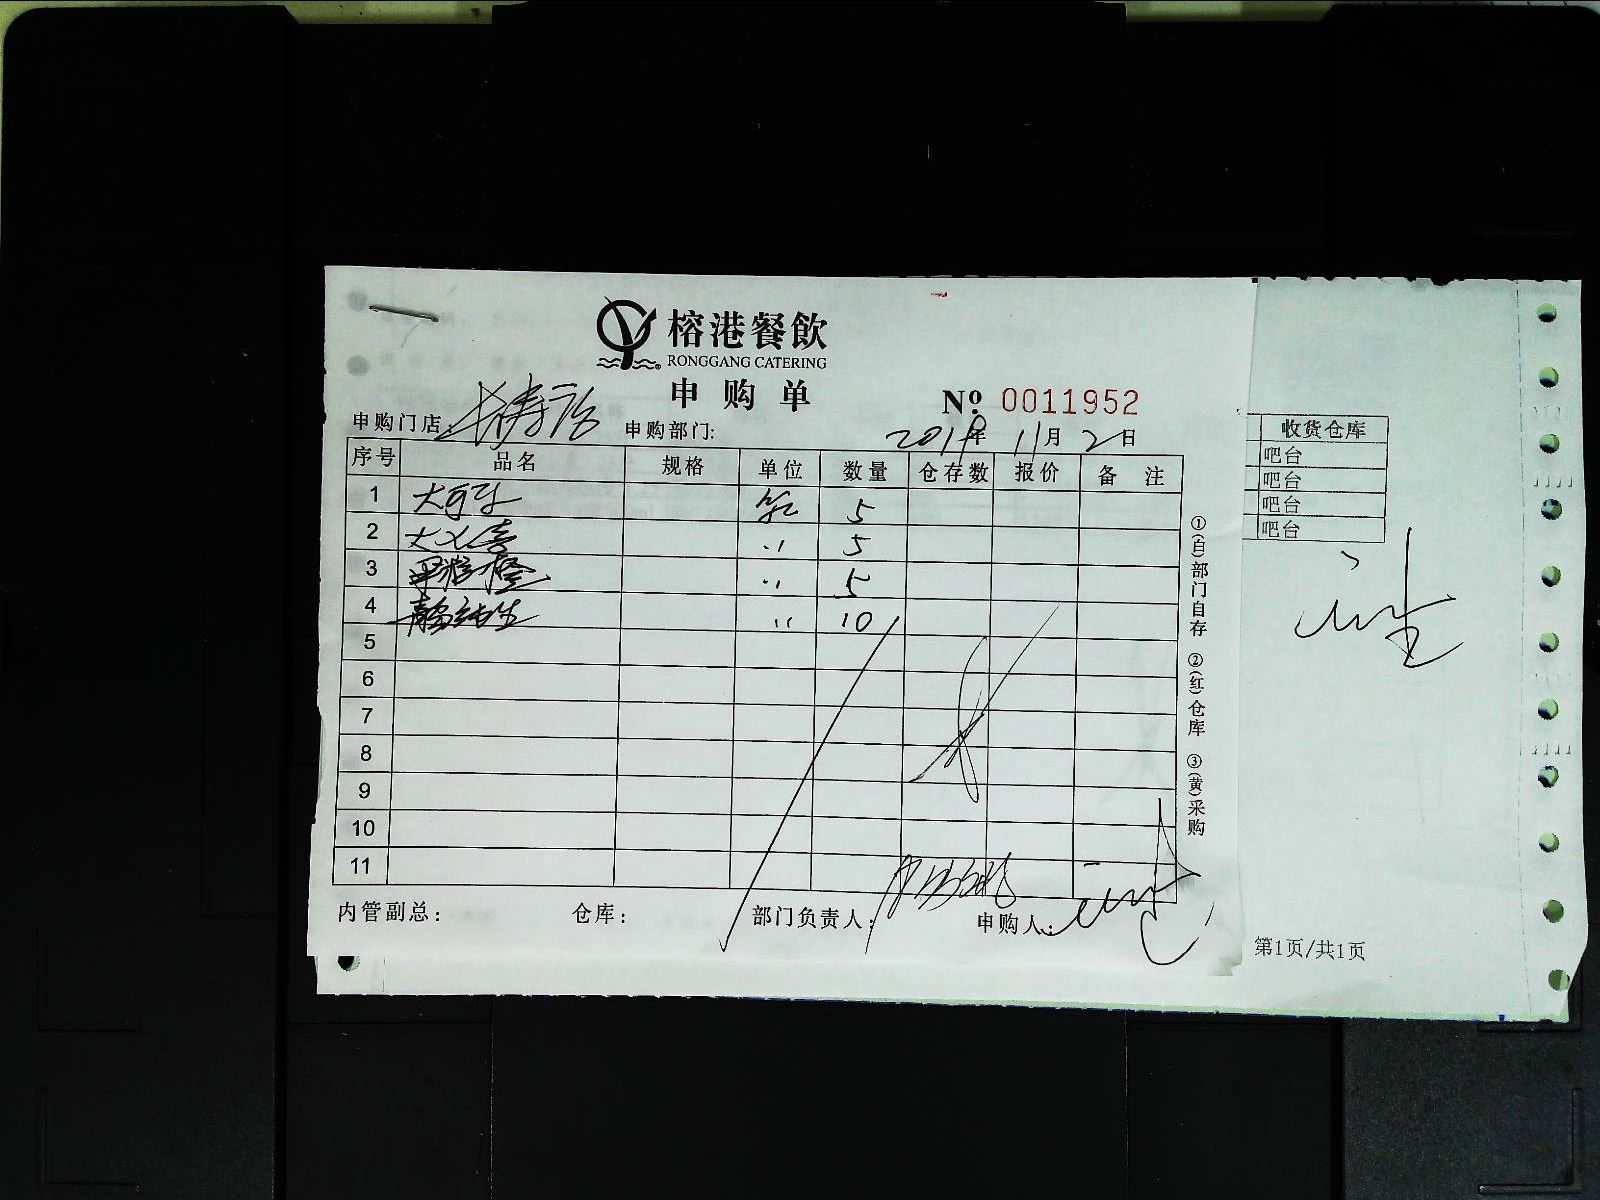 榕港餐飲
RONGGANG CATERING
申购单
№ 0011952
申购门店: 长寿路 申购部门: 2019年 11月 2日
序号 品名 规格 单位 数量 仓存数 报价 备注
1 大可乐 5
2 大父喜 〃 5
3 果粒橙 〃 5
4 〃 10
5
6
7
8
9
10
11
内管副总: 仓库: 部门负责人: 申购人:
①(白)部门自存 ②(红)仓库 ③(黄)采购
收货仓库
吧台
吧台
吧台
吧台
第1页/共1页